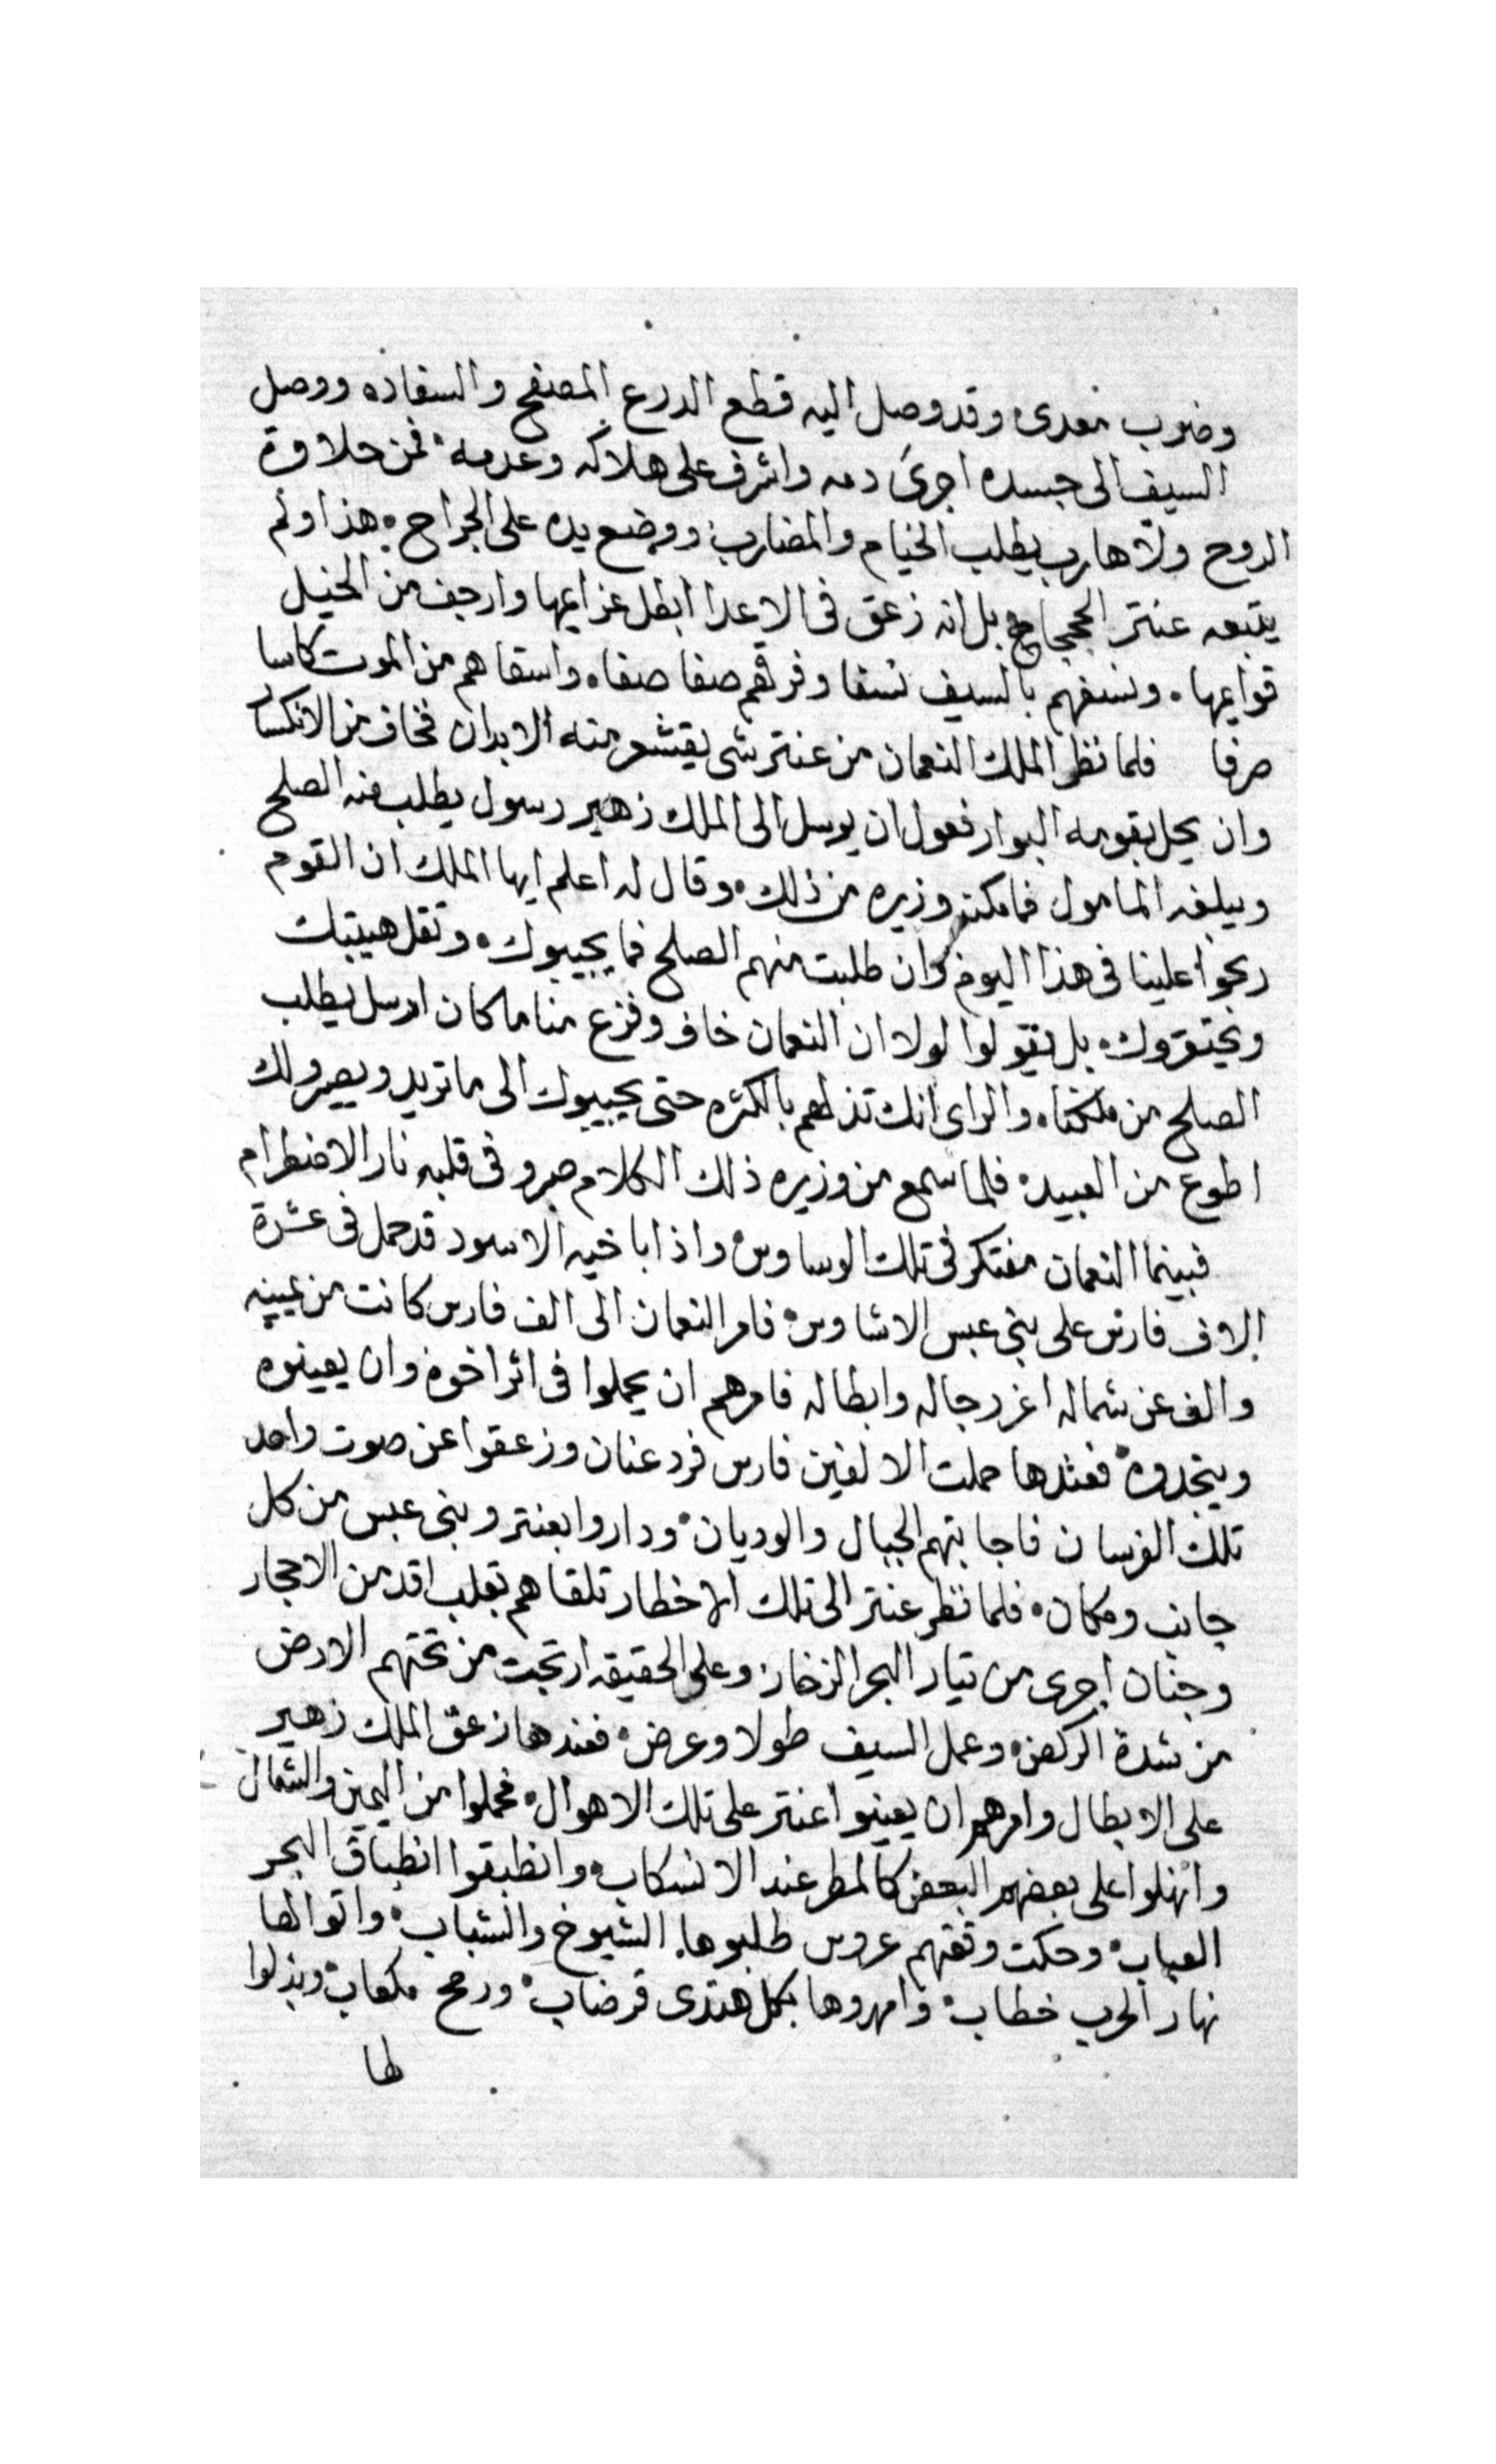 وضرب معدى وقد وصل اليه قطع الدرع المصفح والسفاده ووصل
السيف الى جسده اجرى دمه واشرف على هلاكه وعدمه فمن حلاوة
الروح ولا هارب يطلب الخيام والمضارب ووضع يده على الجراح هذا ولم
يتبعه عنتر الحجاج بل انه زعق فى الاعدا ابطل عزايمها وارجف من الخيل
قوايمها ونسفهم بالسيف نسفا وفرقهم صفا صفا واسقاهم من الموت كاسا
صرفا فلما نظر الملك النعمان من عنتر شى يقشعر منه الابدان فخاف من الانكسار
وان يحل بقومه البوار فعول ان يرسل الى الملك زهير رسول يطلب منه الصلح
ويبلغه المامول فما مكنه وزيره من ذلك وقال له اعلم ايها الملك ان القوم
ربحوا علينا فى هذا اليوم وان طلبت منهم الصلح فما يجيبوك وتقل هيبتك
ويحتقروك بل يقولوا لولا ان النعمان خاف وفزع منا ما كان ارسل يطلب
الصلح من ملكنا والراى انك تذلهم بالكثره حتى يجيبوك الى ما تريد ويصيرو لك
اطوع من العبيد فلما سمع من وزيره ذلك الكلام صبر وفى قلبه نار الاضطرام
فبينما النعمان مفتكر فى تلك الوساوس واذا باخيه الاسود قد حمل فى عشرة
الاف فارس على بنى عبس الاشاوس فامر النعمان الى الف فارس كانت من يمينه
والف عن شماله اغر رجاله وابطاله فامرهم ان يحملوا فى اثر اخوه وان يعينوه
وينجدوه فعندها حملت الالفين فارس فرد عنان وزعقوا عن صوت واحد
تلك الفرسان فاجابتهم الجبال والوديان وداروا بعنتر وبنى عبس من كل
جانب ومكان فلما نظر عنتر الى تلك الاخطار تلقاهم بقلب اقد من الاحجار
وجنان اجرى من تيار البحر الزخار وعلى الحقيقه ارتجت من تحتهم الارض
من شدة الركض وعمل السيف طولا وعرض فعندها زعق الملك زهير
على الابطال وامرهم ان يعينوا عنتر على تلك الاهوال فحملوا من اليمين والشمال
وانهلوا على بعضهم البعض كالمطر عند الانسكاب وانطبقوا انطباق البحر
العباب وحكت وقعتهم عروس طلبوها الشيوخ والشباب واتوا لها
نهار الحرب خطاب وامهروها بكل هندى قرضاب ورمح مكعاب وبذلوا
لها